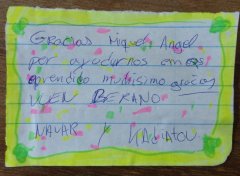 Gracias Miguel Angel
por ayudarnos emos
aprendido muchisimo gracias
VUEN BERANO
NAYAR Y KADIATOU